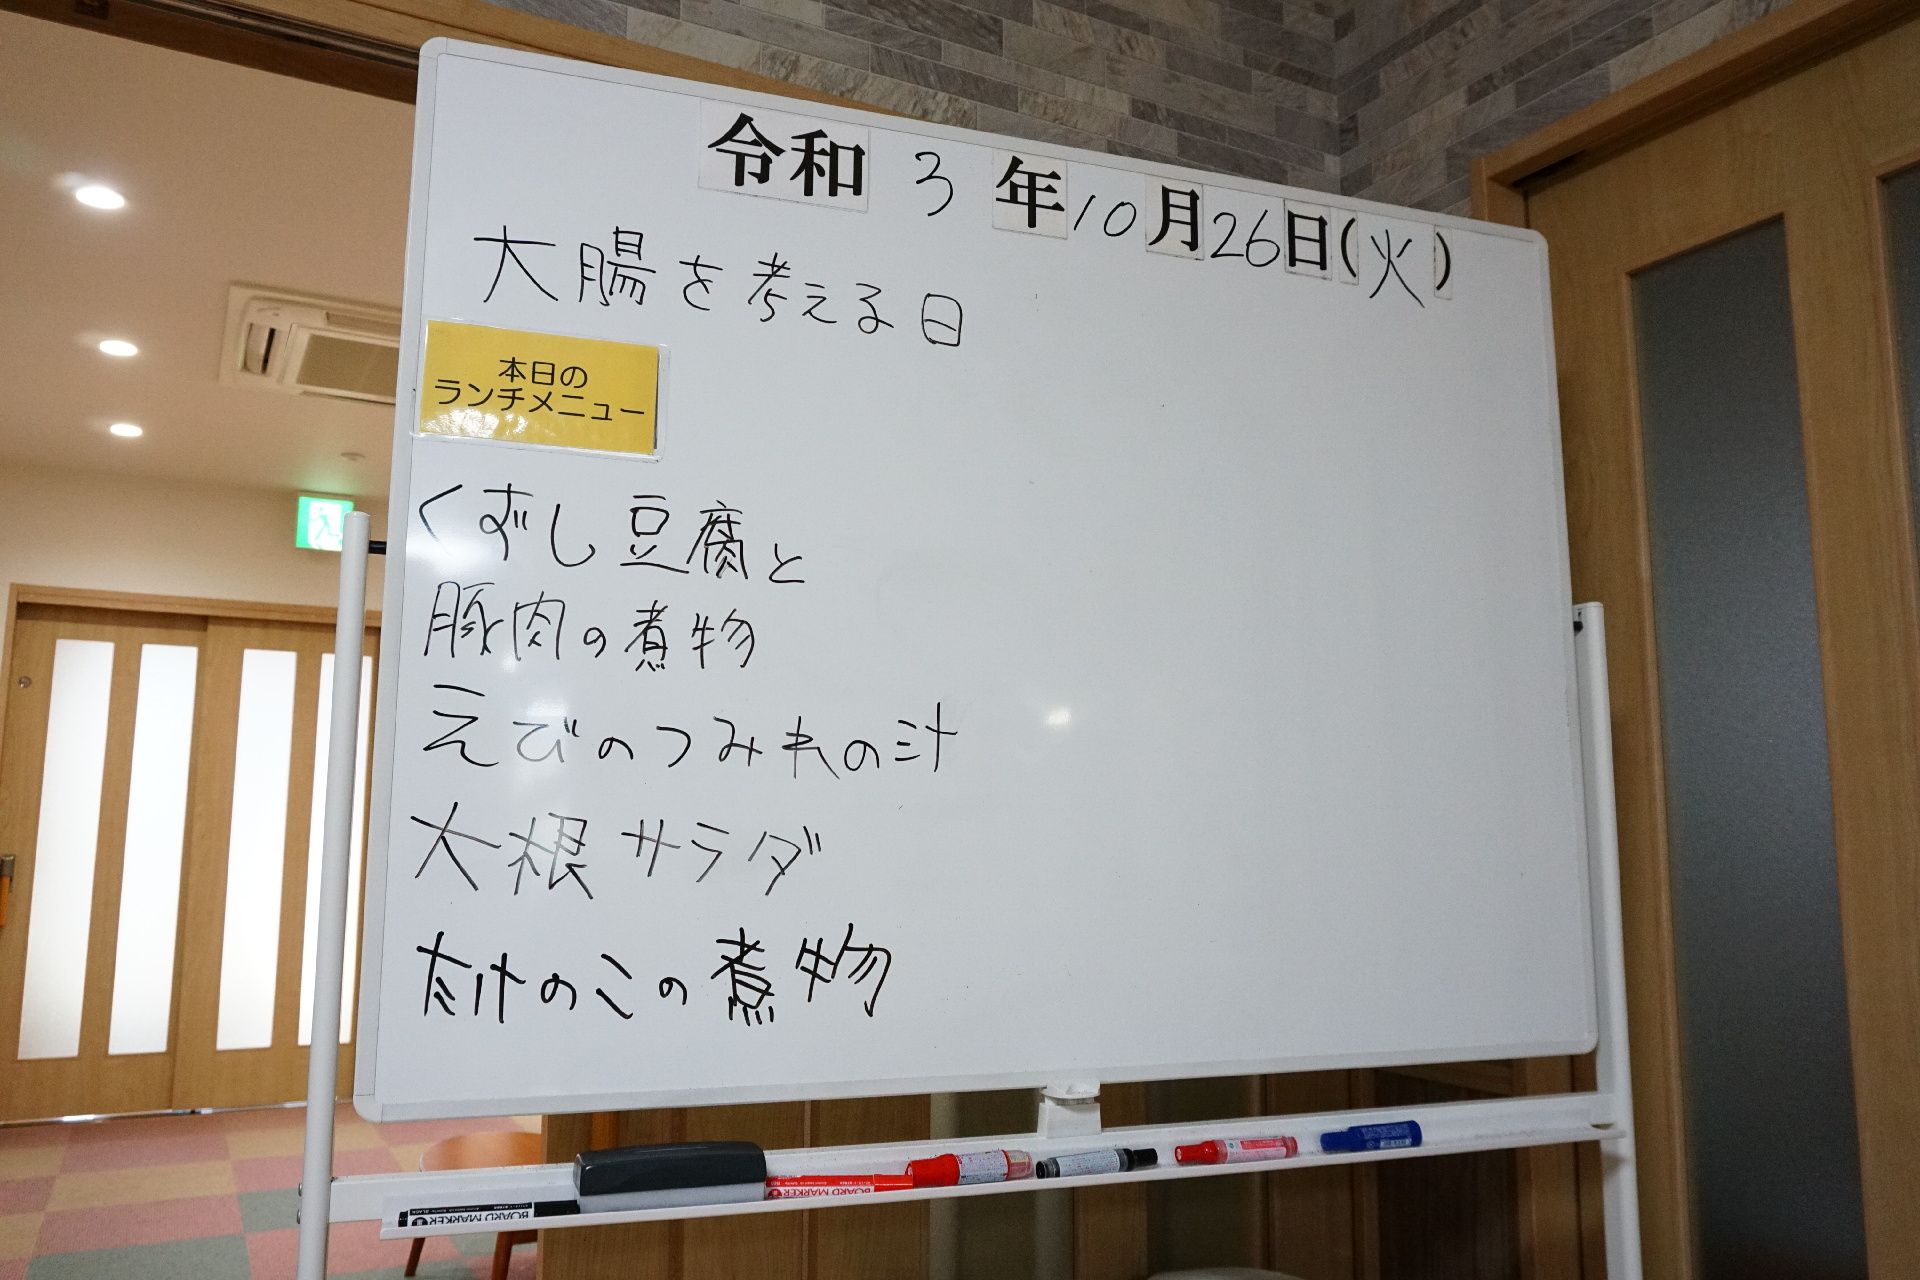 令和3年10月26日(火)
大腸を考える日
本日の
ランチメニュー
くずし豆腐と
豚肉の煮物
えびのつみれの汁
大根サラダ
たけのこの煮物
BOARD MARKER
BOARD MARKER